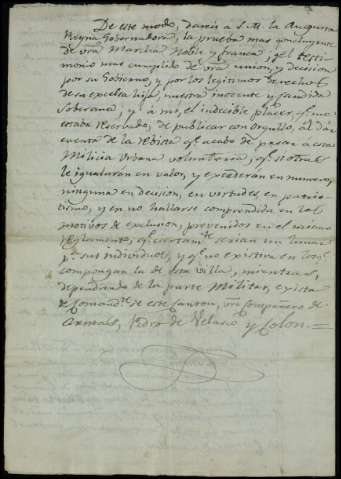 De este modo, dareis a S.M. la Augusta
Reyna Gobernadora, la prueba mas concluyente
de vra Marcha Noble y franca, y el testi-
monio mas cumplido de vra union, y decision
por su Gobierno, y por los legitimos derechos
de su excelsa hija, nuestra inocente y candida
Soberana; y á mi, el indecible placer, q.e me
estaba reservado, de publicar con orgullo, al dar
cuenta de la rebista q.e acabo de pasar a esa
Milicia Urbana voluntaria, q.e si otras
le igualaran en valor, y excederan en numero,
ninguna en decision, en virtudes, en patrio-
tismo, y en no hallarse comprendida en los
motivos de exclusion, prevenidos en el mismo
reglamento, q.e ciertam.te serian un lunar
p.a sus individuos, y q.e no existira en los q.e
compongan la de esta villa, mientras
dependa de la parte Militar, exista
de Comand.te de este Canton, vro Compañero de
Armas, Pedro de Velasco y Colon.=